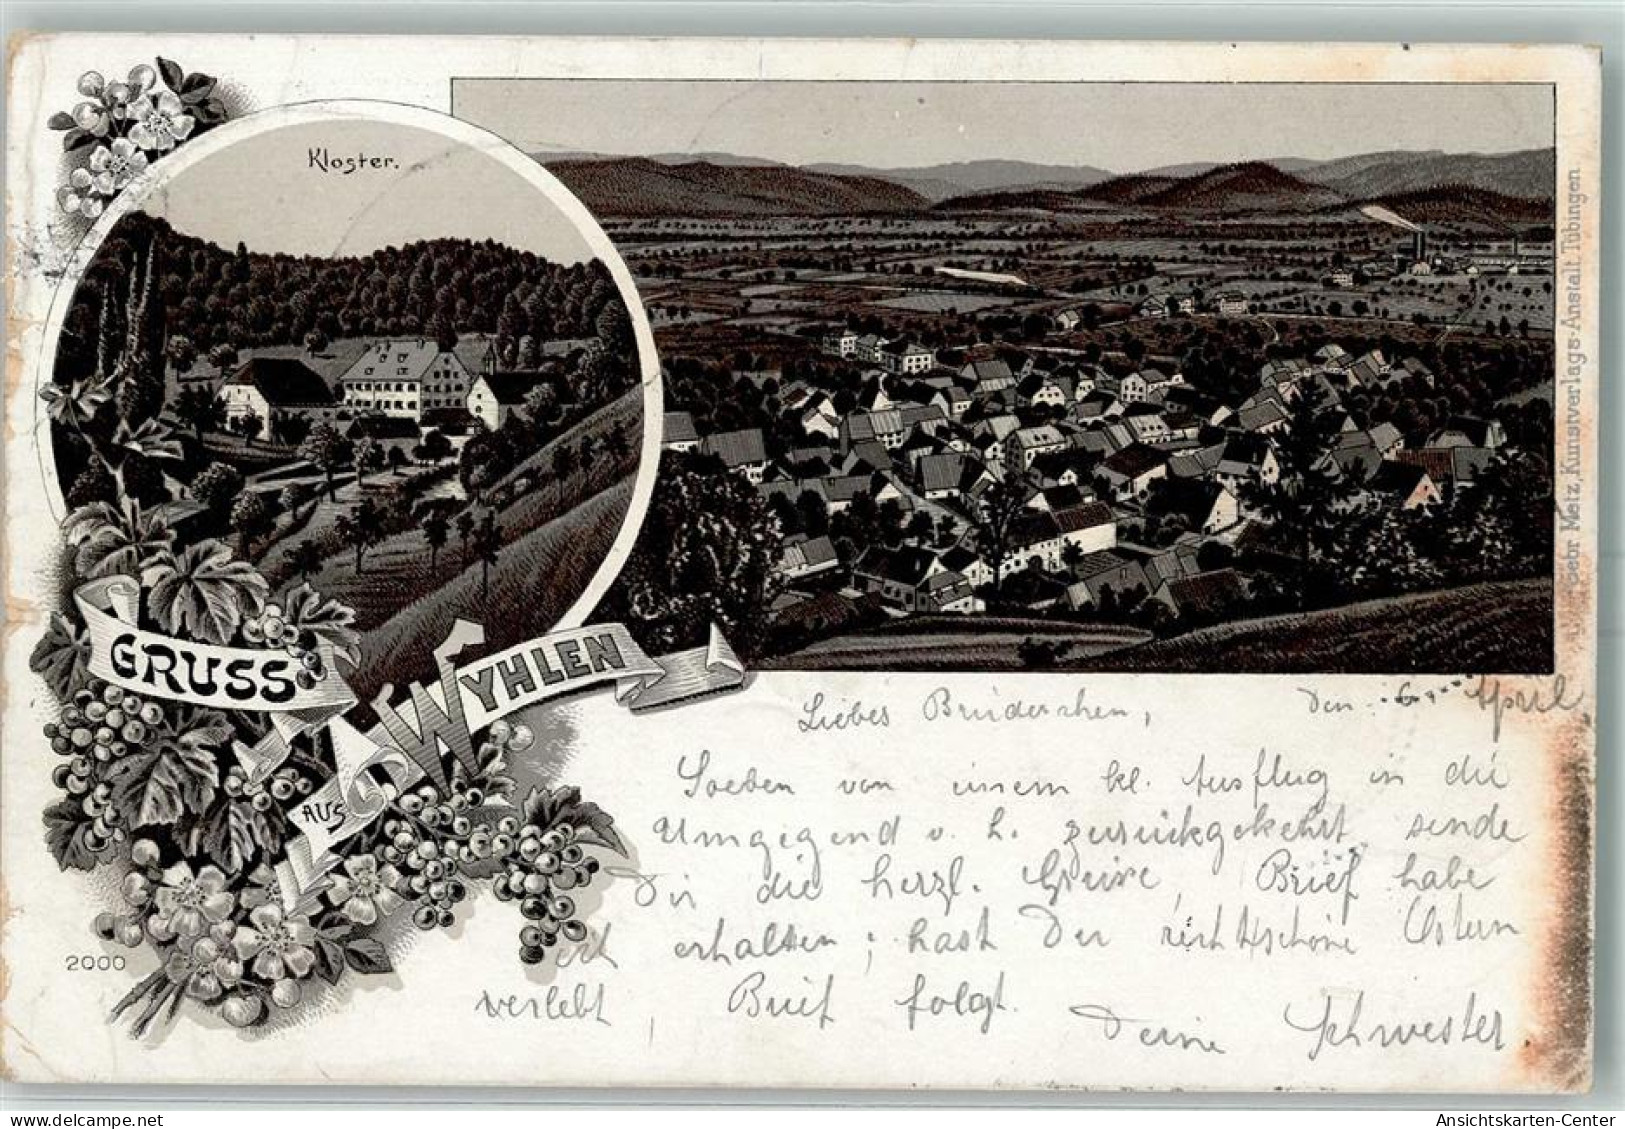 Kloster.
GRUSS
AUS
WYHLEN
2000
Gebr Metz, Kunstverlags-Anstalt Tübingen
Liebes Brüderchen, Den 6. April
Soeben von einem kl. Ausflug in die
Umgegend v. h. zurückgekehrt sende
Dir die herzl. Grüße, Brief habe
ich erhalten; hast Du recht schöne Ostern
verlebt, Brief folgt.
Deine Schwester
Ansichtskarten-Center